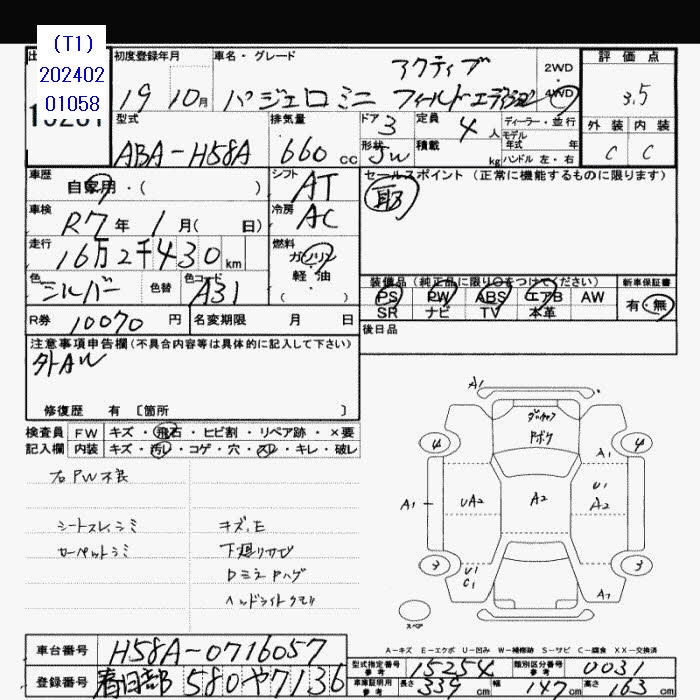 (T1)
202402
01058
初度登録年月
車名・グレード
評価点
19 10月
パジェロミニ
アクティブ
フィールドエディション
2WD
4WD
3.5
型式
ABA-H58A
排気量
660 cc
ドア 3
定員 4人
ディーラー・並行
モデル
年式 年
形状 5W
積載 kg
ハンドル 左・右
外装 内装
C C
車歴
自家用・( )
シフト
AT
セールスポイント (正常に機能するものに限ります)
取
車検
R7年 1月( 日)
冷房
AC
走行
16万2千430km
燃料
ガソリン
軽・油
( )
色
シルバー
色替
色コード
A31
装備品 (純正品に限り○をつけてください)
新車保証書
PS PW ABS エアB AW
SR ナビ TV 本革
有・無
R券 10070円
名変期限 月 日
後日品
注意事項申告欄(不具合内容等は具体的に記入して下さい)
外AW
修復歴 有 [箇所 ]
検査員 FW キズ・飛石・ヒビ割・リペア跡・×要
記入欄 内装 キズ・汚れ・コゲ・穴・スレ・キレ・破レ
右PW不良
シートスレ、シミ
カーペットシミ
キズ、E
下廻りサビ
Dミラーハゲ
ヘッドライトクモリ
A1
4 4
A1
A1 UA2 A2 U1
A2
3 3
U1
C1
A1
スペア
A-キズ E-エクボ U-凹み W-補修跡 S-サビ C-腐食 XX-交換済
車台番号 H58A-0716057
登録番号 春日部 580 や 7136
型式指定番号
参考
15254
類別区分番号
参考
0031
車庫証明用
参考
長さ 339cm 幅 147cm 高さ 163cm